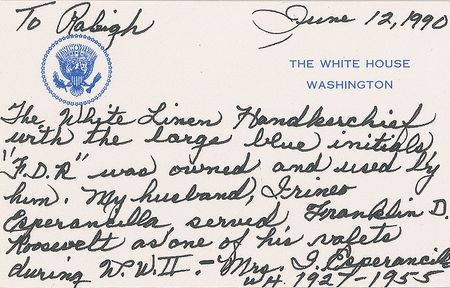 To Rabigh
June 12, 1990
THE WHITE HOUSE
WASHINGTON
The White Linen Handkerchief
with the large blue initials,
"F.D.R" was owned and used by
him. My husband, Irineo
Esperancilla, served Franklin D.
Roosevelt as one of his valets
during W.W.II. - Mrs. I. Esperancilla
W.H. 1927-1955